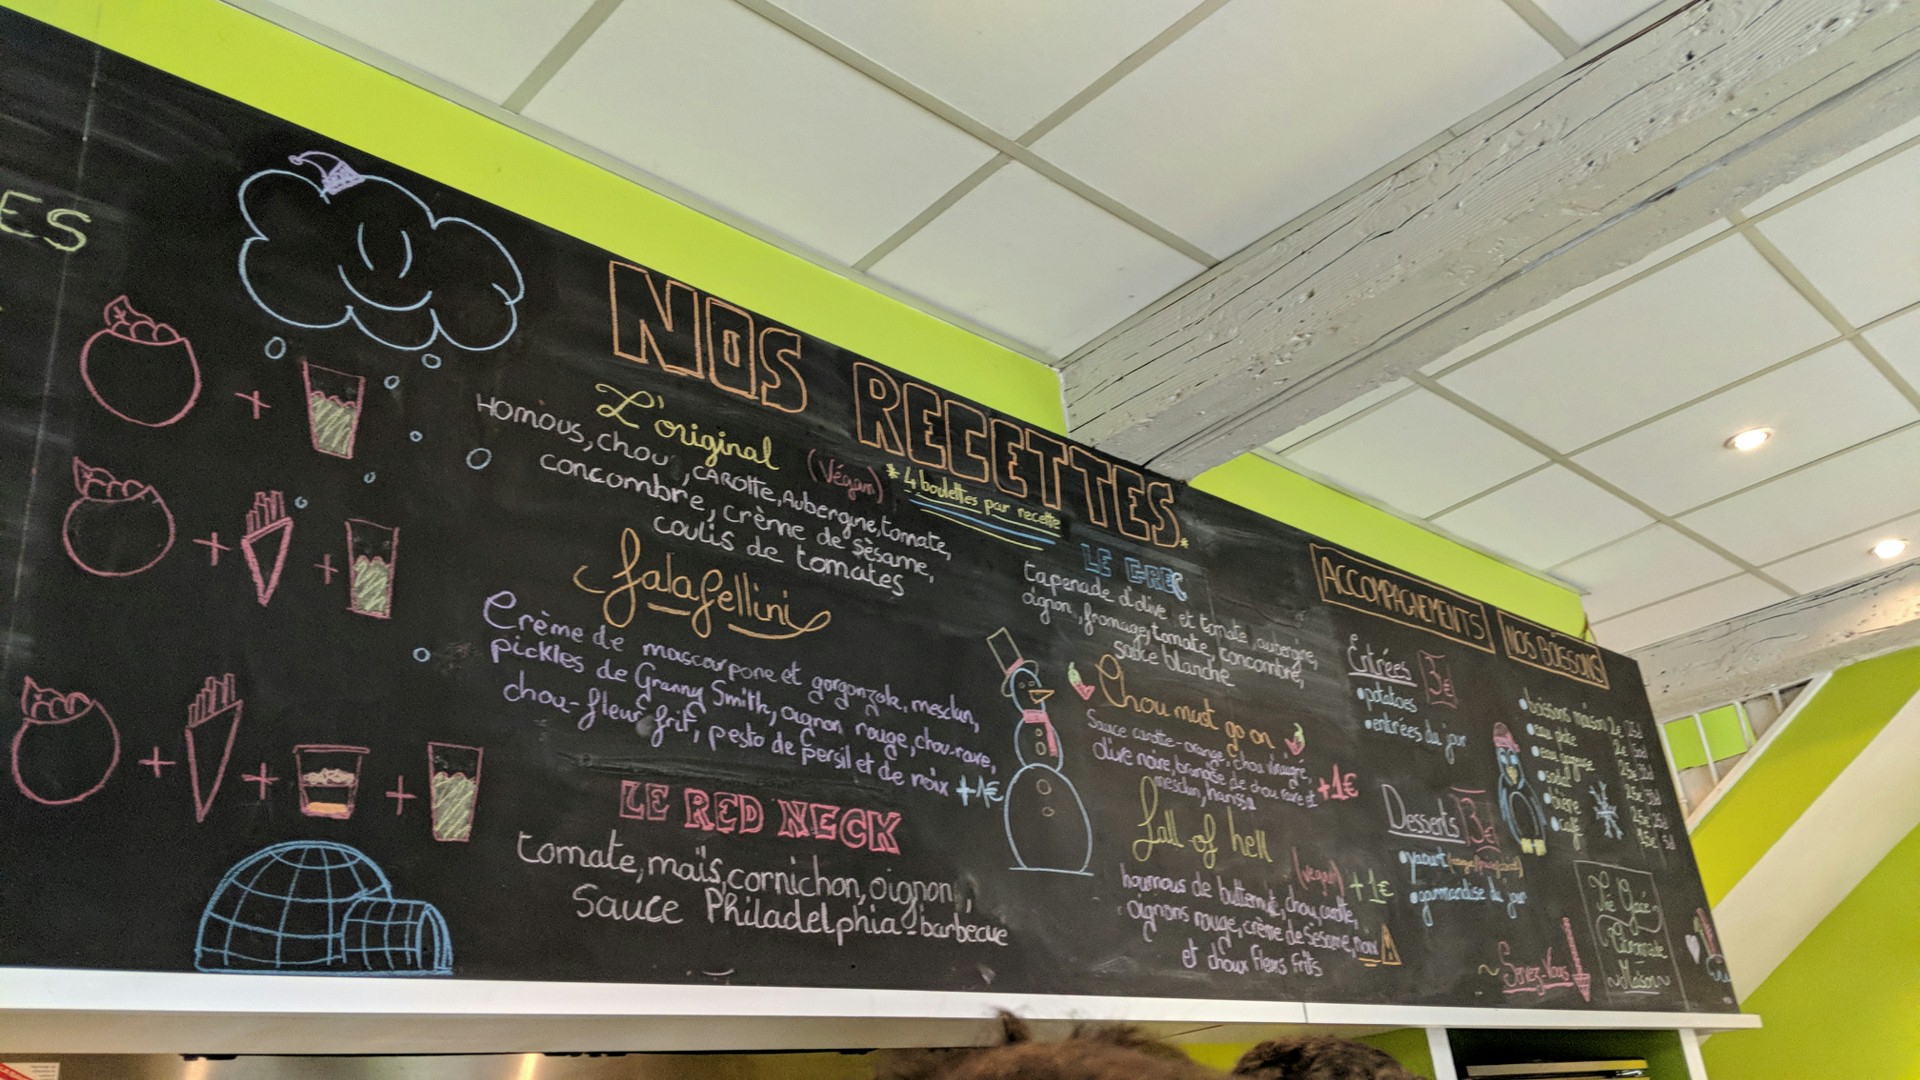 ES
NOS RECETTES*
*4 boulettes par recette
L'original (Végan)
Homous, chou, carotte, Aubergine, tomate,
concombre, crème de sèsame,
coulis de tomates
falafellini
Crème de mascarpone et gorgonzola, mesclun,
pickles de Granny Smith, oignon rouge, chou-rave,
chou-fleur frit, pesto de persil et de noix +1€
LE RED NECK
tomate, maïs, cornichon, oignon,
Sauce Philadelphia-barbecue
LE GREC
tapenade d'olive et tomate, aubergine,
oignon, fromage, tomate, concombre,
sauce blanche
Chou must go on
Sauce carotte-orange, chou vinaigré,
olive noire, brunoise de chou rave et +1€
mesclun, harissa
fall of hell (vegan) +1€
houmous de butternut, chou, carotte,
oignons rouge, crème de sèsame, noix
et choux fleurs frits
ACCOMPAGNEMENTS
Entrées 3€
potatoes
entrées du jour
Desserts 3€
yaourt
gourmandise du jour
~Servez-Vous
NOS BOISSONS
boissons maison 2€
eau plate 2€
eau gazeuse
soda
bière
café
Thé Glacé
Citronnade
~Maison~